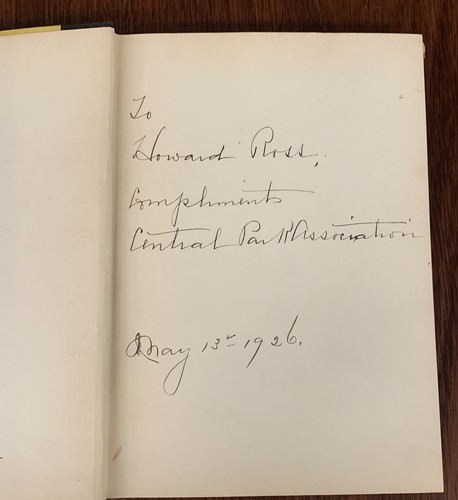 To
Howard Ross,
Compliments
Central Park Association
May 13th 1926.